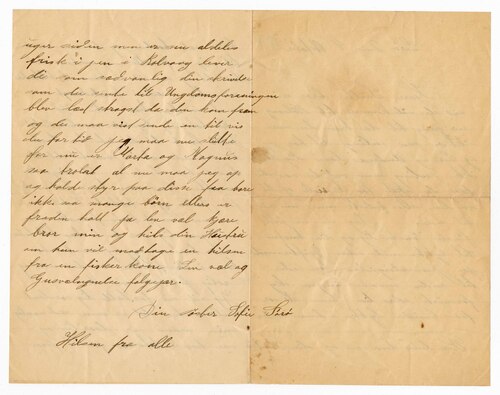 uger siden men er nu aldeles
frisk igen i Kolvaag lever
de som sædvanlig din skrivelse
som du sente til Ungdomsforeningen
blev læst straqst da den kom fram
og du maa vist sende en til vis
du far tid jeg maa nu slutte
for nu er Marta og Magnus
saa at nu maa jeg op
og holde styr paa disse faa bare
ikke saa mange börn ellers er
freden holt ja lev vel kjære
bror min og hils din
om hun vil modtage en hilsen
fra en fisker kone Lev vel og
Gudsvelsignelse følge jer.
Din söster Sofie
Hilsen fra alle